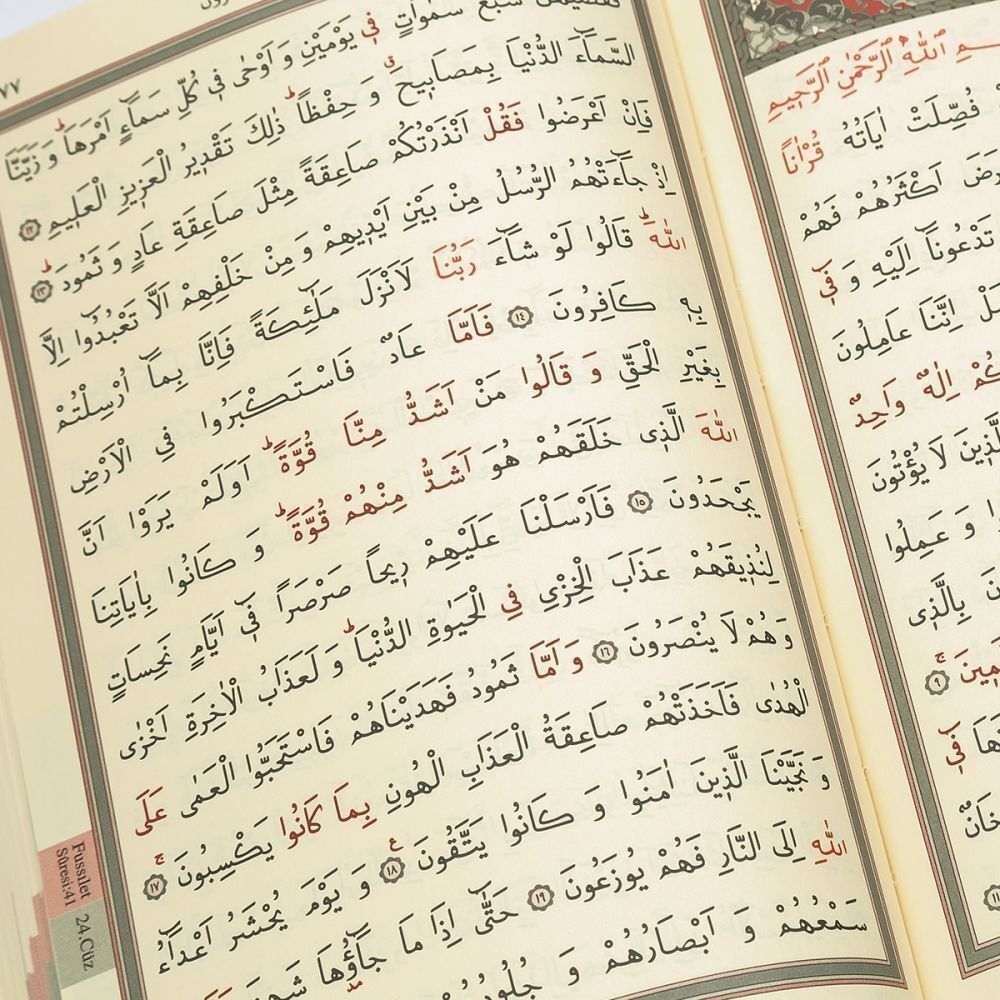 سَمٰوَاتٍ ف۪ي يَوْمَيْنِ وَ اَوْحٰى ف۪ي كُلِّ سَمَٓاءٍ اَمْرَهَاۜ وَ زَيَّنَّا
السَّمَٓاءَ الدُّنْيَا بِمَصَاب۪يحَۗ وَ حِفْظًاۜ ذٰلِكَ تَقْد۪يرُ الْعَز۪يزِ الْعَل۪يمِ ﴿١٢﴾
فَاِنْ اَعْرَضُوا فَقُلْ اَنْذَرْتُكُمْ صَاعِقَةً مِثْلَ صَاعِقَةِ عَادٍ وَ ثَمُودَۜ ﴿١٣﴾
اِذْ جَٓاءَتْهُمُ الرُّسُلُ مِنْ بَيْنِ اَيْد۪يهِمْ وَ مِنْ خَلْفِهِمْ اَلَّا تَعْبُدُٓوا اِلَّا
اللّٰهَۜ قَالُوا لَوْ شَٓاءَ رَبُّنَا لَاَنْزَلَ مَلٰٓئِكَةً فَاِنَّا بِمَٓا اُرْسِلْتُمْ
بِه۪ كَافِرُونَ ﴿١٤﴾ فَاَمَّا عَادٌ فَاسْتَكْبَرُوا فِي الْاَرْضِ
بِغَيْرِ الْحَقِّ وَ قَالُوا مَنْ اَشَدُّ مِنَّا قُوَّةًۜ اَوَلَمْ يَرَوْا اَنَّ
اللّٰهَ الَّذ۪ي خَلَقَهُمْ هُوَ اَشَدُّ مِنْهُمْ قُوَّةًۜ وَ كَانُوا بِاٰيَاتِنَا
يَجْحَدُونَ ﴿١٥﴾ فَاَرْسَلْنَا عَلَيْهِمْ ر۪يحًا صَرْصَرًا ف۪ٓي اَيَّامٍ نَحِسَاتٍ
لِنُذ۪يقَهُمْ عَذَابَ الْخِزْيِ فِي الْحَيٰوةِ الدُّنْيَاۜ وَ لَعَذَابُ الْاٰخِرَةِ اَخْزٰى
وَهُمْ لَا يُنْصَرُونَ ﴿١٦﴾ وَ اَمَّا ثَمُودُ فَهَدَيْنَاهُمْ فَاسْتَحَبُّوا الْعَمٰى عَلَى
الْهُدٰى فَاَخَذَتْهُمْ صَاعِقَةُ الْعَذَابِ الْهُونِ بِمَا كَانُوا يَكْسِبُونَۚ ﴿١٧﴾
وَ نَجَّيْنَا الَّذ۪ينَ اٰمَنُوا وَ كَانُوا يَتَّقُونَ۟ ﴿١٨﴾ وَ يَوْمَ يُحْشَرُ اَعْدَٓاءُ
اللّٰهِ اِلَى النَّارِ فَهُمْ يُوزَعُونَ ﴿١٩﴾ حَتّٰٓى اِذَا مَا جَٓاؤُ۫هَا
سَمْعُهُمْ وَ اَبْصَارُهُمْ وَ
Fussılet
Sûresi:41
24.Cüz
اللّٰهِ الرَّحْمٰنِ الرَّح۪يمِ
فُصِّلَتْ اٰيَاتُهُ قُرْاٰنًا
اَكْثَرُهُمْ فَهُمْ
تَدْعُونَٓا اِلَيْهِ وَ ف۪ٓي
اِنَّنَا عَامِلُونَ
اِلٰهٌ وَاحِدٌ
لَا يُؤْتُونَ
وَ عَمِلُوا
بِالَّذ۪ي
﴿٩﴾
ف۪ي